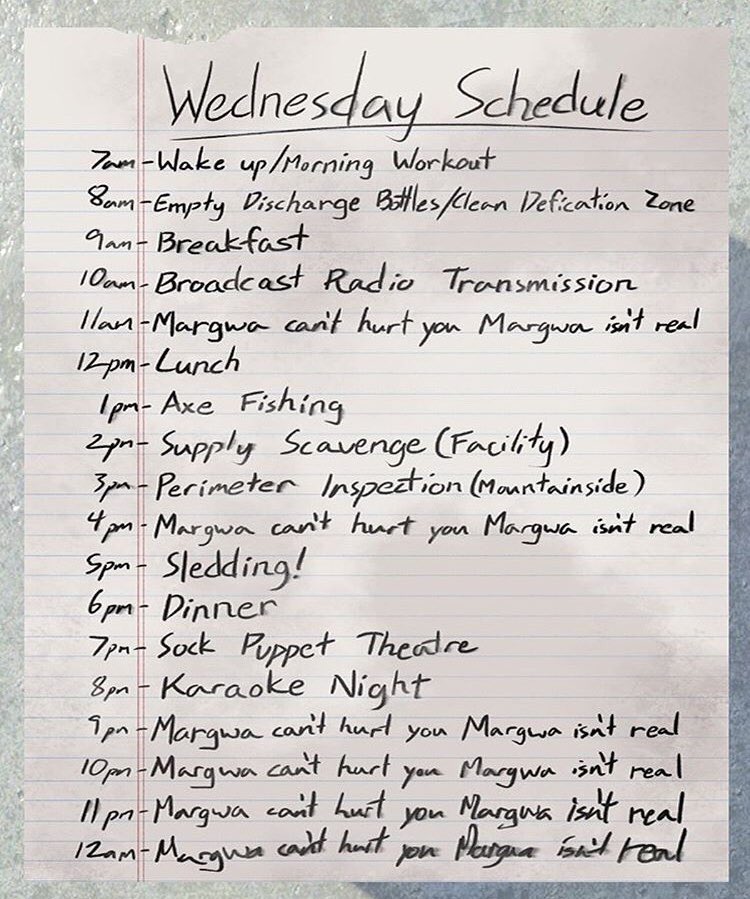 Wednesday Schedule
7am-Wake up/Morning Workout
8am-Empty Discharge Bottles/Clean Defication Zone
9am-Breakfast
10am-Broadcast Radio Transmission
11am-Margwa can't hurt you Margwa isn't real
12pm-Lunch
1pm-Axe Fishing
2pm-Supply Scavenge (Facility)
3pm-Perimeter Inspection (Mountainside)
4pm-Margwa can't hurt you Margwa isn't real
5pm-Sledding!
6pm-Dinner
7pm-Sock Puppet Theatre
8pm-Karaoke Night
9pm-Margwa can't hurt you Margwa isn't real
10pm-Margwa can't hurt you Margwa isn't real
11pm-Margwa can't hurt you Margwa isn't real
12am-Margwa can't hurt you Margwa isn't real